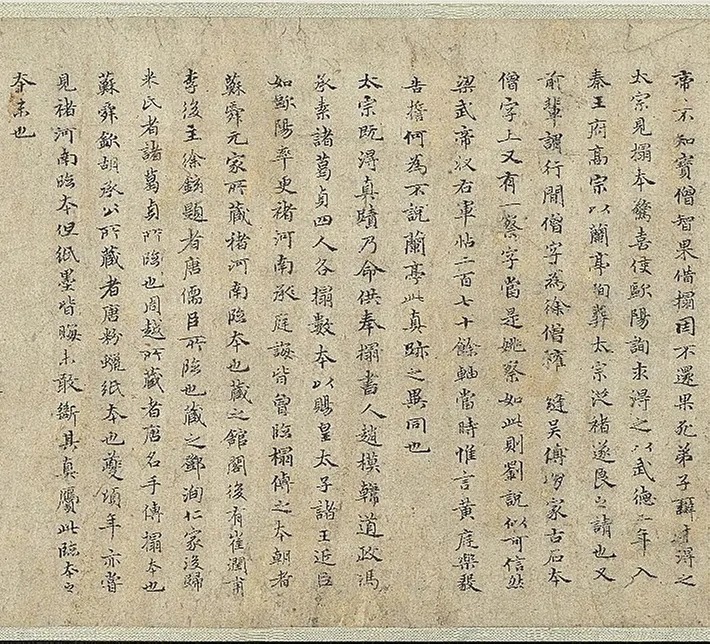 帝不知寶僧智果借搨因不還果死弟子辯才得之
太宗見搨本驚喜使歐陽詢求得之以武德二年入
秦王府高宗以蘭亭殉葬太宗從褚遂良之請也又
前輩謂行間僧字為徐僧權縫吳傅朋家古石本
僧字上又有一察字當是姚察如此則劉說似可信然
梁武帝收右軍帖二百七十餘軸當時惟言黃庭樂毅
告誓何為不說蘭亭此真跡之異同也
太宗既得真蹟乃命供奉搨書人趙模韓道政馮
承素諸葛貞四人各搨數本以賜皇太子諸王近臣
如歐陽率更褚河南承庭誨皆曾臨搨傳之本朝者
蘇舜元家所藏褚河南臨本也藏之館閣後有崔潤甫
李後主徐鉉題者唐儒臣所臨也藏之鄧洵仁家後歸
米氏者諸葛貞所臨也周越所藏者唐名手傳搨本也
蘇舜欽胡承公所藏者唐粉蠟紙本也夔頃年亦嘗
見褚河南臨本但紙墨皆晦未敢斷其真贗此臨本之
本末也